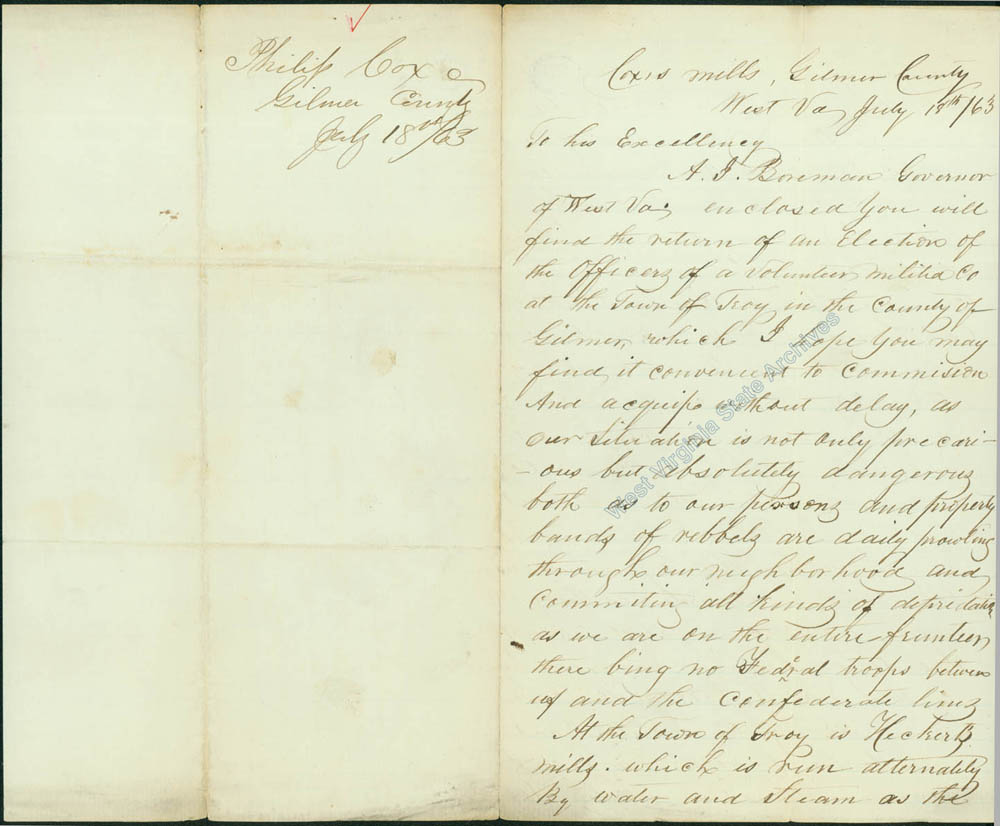 Philip Cox
Gilmer County
July 18th/63
Cox,s mills, Gilmer County
West Va July 18th/63
To his Excellency
A. I. Boreman Governor
of West Va, enclosed you will
find the return of an Election of
the Officers of a volunteer militia Co
at the Town of Troy in the County of
Gilmer, which I hope you may
find it convenient to commision
And acquip without delay, as
our Situation is not only precari-
-ous but absolutely dangerous
both as to our persons and property
bands of rebbels are daily prowling
through our neighborhood and
Commiting all kinds of depridations
as we are on the entire frunteer,
there bing no Federal troops between
us and the Confederate lines
At the Town of Troy is Heckerts
mills. which is run alternately
By water and Steam as the
West Virginia State Archives